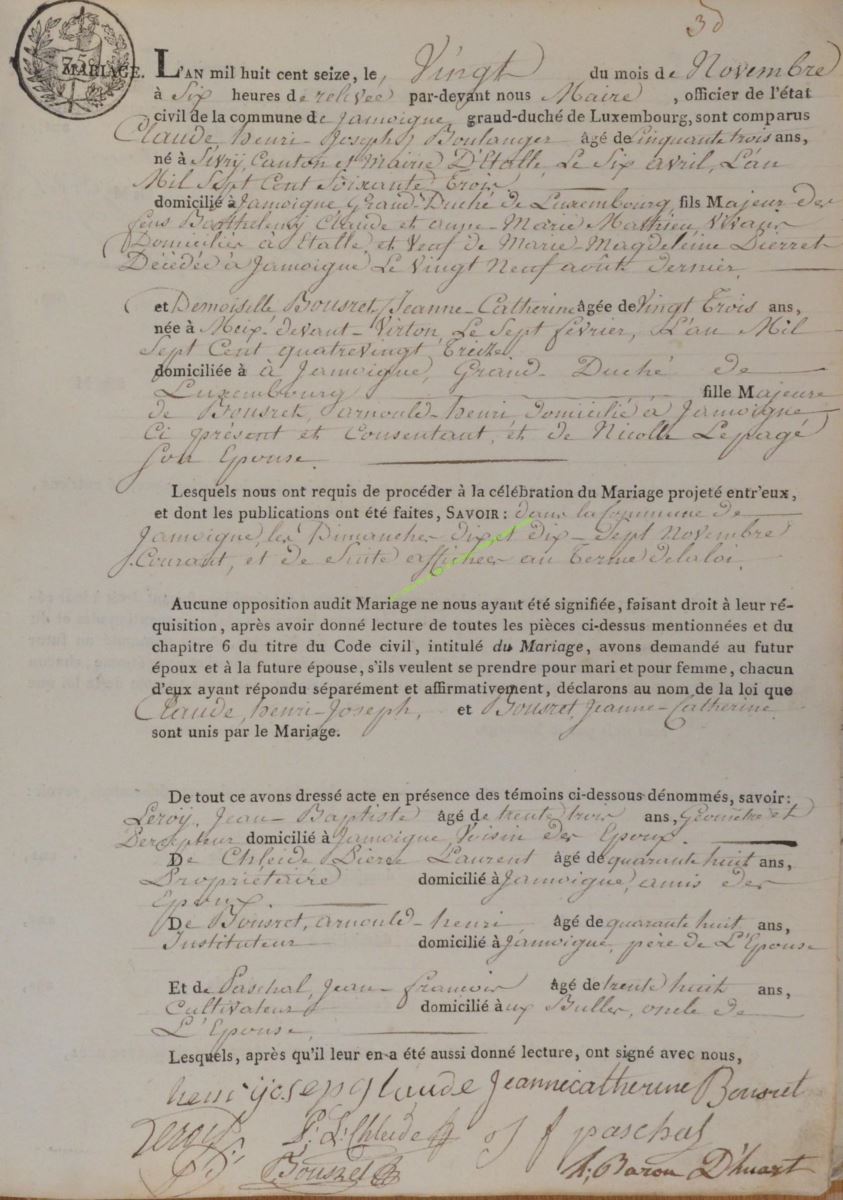 30
75c
MARIAGE. L'AN mil huit cent seize, le Vingt du mois de Novembre
à Six heures de relivée par-devant nous Maire, officier de l'état
civil de la commune de Jamoigne grand-duché de Luxembourg, sont comparus
Claude, henri-Joseph, Boulanger âgé de Cinquante trois ans,
né à Sivry, Canton et Mairie D'Etalle, Le Six avril, L'an
Mil Sept Cent Soixante Trois
domicilié à Jamoigne Grand-Duché de Luxembourg, fils Majeur des
feus Barthelemy Claude et anne-Marie Mathieu, Vivans
Domiciliés à Etalle et Veuf de Marie-Magdeleine Pierret
Décédée à Jamoigne Le Vingt Neuf août dernier.
et Demoiselle Bousret, Jeanne-Catherine âgée de Vingt Trois ans,
née à Meix-devant-Virton, Le Sept février, L'an Mil
Sept Cent quatrevingt Treize.
domiciliée à à Jamoigne, Grand-Duché de
Luxembourg fille Majeure
de Bousret, arnould-henri domicilié à Jamoigne
Ci présent et Consentant, et de Nicolle Lepagé
Son Epouse.
Lesquels nous ont requis de procéder à la célébration du Mariage projeté entr'eux,
et dont les publications ont été faites, SAVOIR: dans la Commune de
Jamoigne, les Dimanches dix et dix-Sept Novembre
Courant, et de Suite affichées au Terme de la loi.
Aucune opposition audit Mariage ne nous ayant été signifiée, faisant droit à leur ré-
quisition, après avoir donné lecture de toutes les pièces ci-dessus mentionnées et du
chapitre 6 du titre du Code civil, intitulé du Mariage, avons demandé au futur
époux et à la future épouse, s'ils veulent se prendre pour mari et pour femme, chacun
d'eux ayant répondu séparément et affirmativement, déclarons au nom de la loi que
Claude, henri-Joseph, et Bousret, Jeanne-Catherine
sont unis par le Mariage.
De tout ce avons dressé acte en présence des témoins ci-dessous dénommés, savoir:
Leroy, Jean-Baptiste âgé de trente trois ans, Géomètre et
Percepteur domicilié à Jamoigne, Voisin des Epoux.
De Chleide Pierre Laurent âgé de quarante huit ans,
Propriétaire domicilié à Jamoigne, amis des
Epoux.
De Bousret, arnould-henri, âgé de quarante huit ans,
Instituteur domicilié à Jamoigne, père de L'Epouse
Et de Paschal, Jean-francois âgé de trente huit ans,
Cultivateur domicilié aux Bulles, oncle de
L'Epouse,
Lesquels, après qu'il leur en a été aussi donné lecture, ont signé avec nous,
henri joseph Claude Jeanne catherine Bousret
Leroy P: L: Chleide j f paschal
Bousret h: Baron D'huart